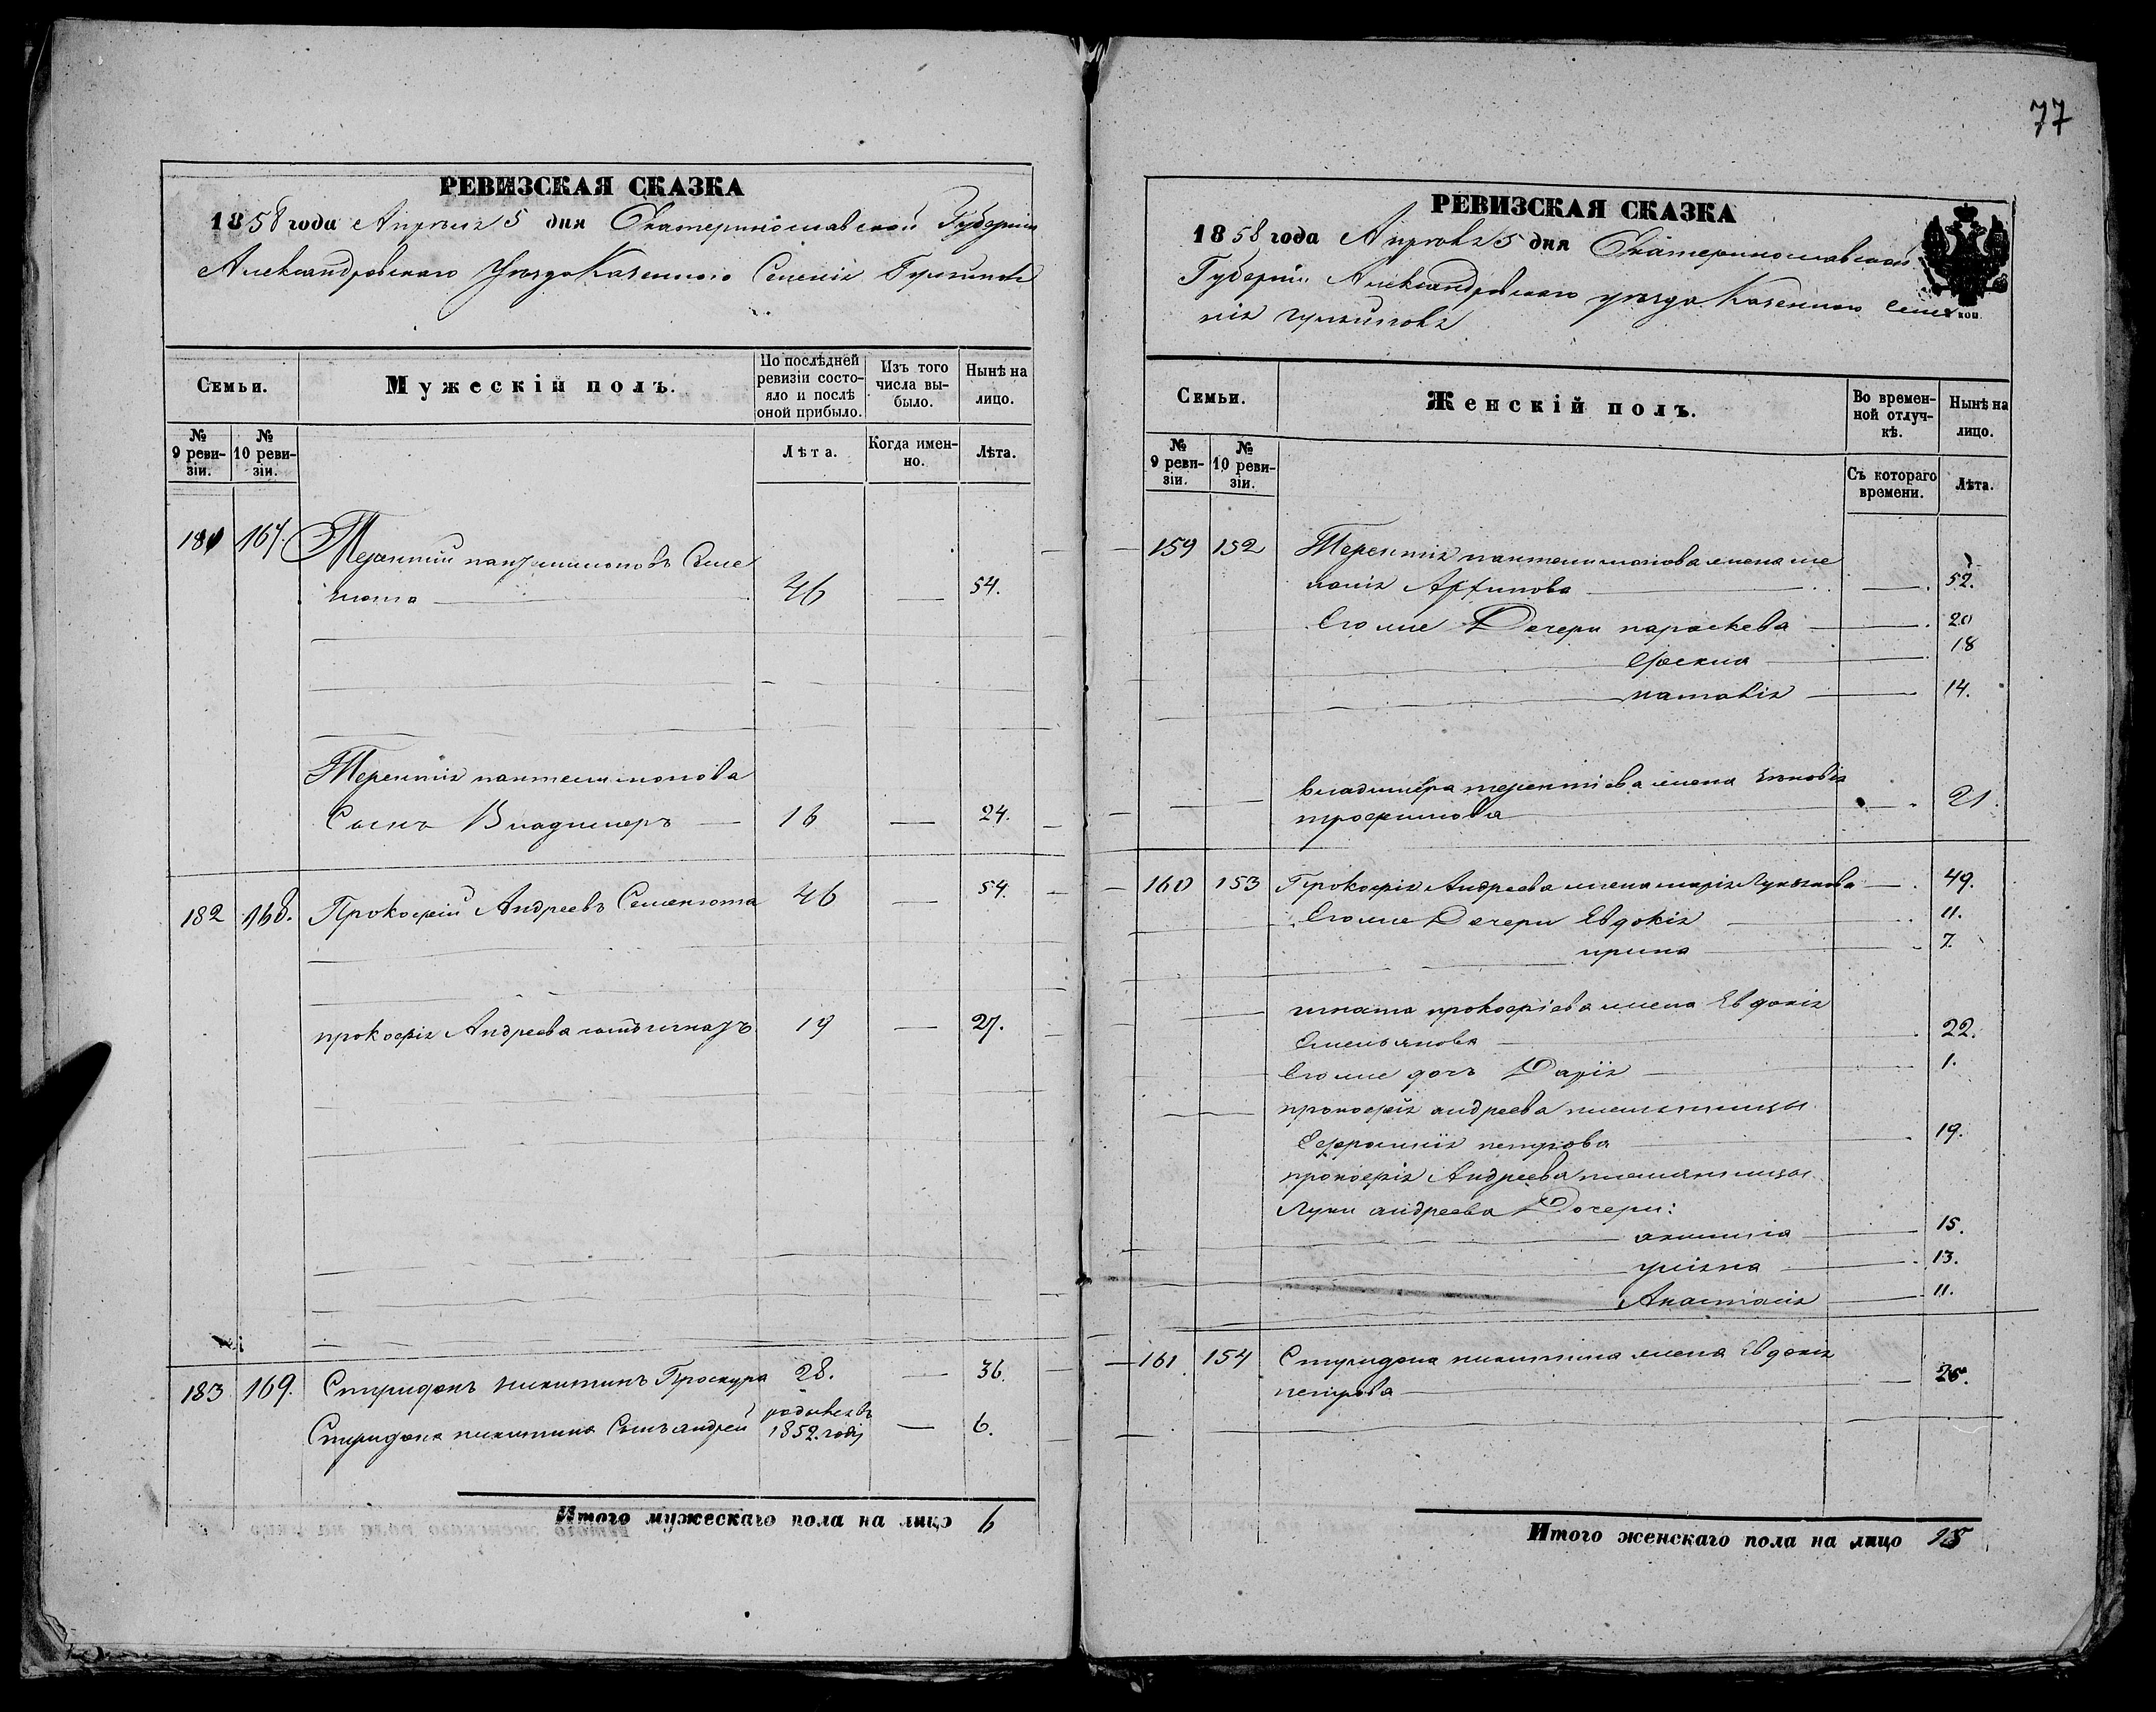 РЕВИЗСКАЯ СКАЗКА
1858 года Апреля 5 дня Екатеринославской Губернии
Александровскаго Уезда Казеннаго Селения
Семьи.
Мужескій полъ.
По послѣдней ревизіи состояло и послѣ оной прибыло.
Изъ того числа выбыло.
Нынѣ на лицо.
№ 9 ревизіи.
№ 10 ревизіи.
Лѣта.
Когда именно.
Лѣта.
181 167. Терентий пантилимоновъ Семе
нюта 46 — 54.
Терентия пантелимонова
Сынъ Владимеръ 16 — 24.
182 168. Прокофий Андреевъ Семенюта 46 — 54.
прокофия Андреева сынъ игнатъ 19 — 27.
183 169. Спиридонъ никитинъ Проскура 28. — 36.
Спиридона никитина Сынъ андрей родивсяъ 1852. году — 6.
Итого мужескаго пола на лицо 6
77
РЕВИЗСКАЯ СКАЗКА
1858 года Апреля 5 дня Екатеринославской
Губернии Александровскаго уезда Казеннаго Селе
ния
коп.
Семьи.
Женскій полъ.
Во временной отлучкѣ.
Нынѣ на лицо.
№ 9 ревизіи.
№ 10 ревизіи.
Съ котораго времени.
Лѣта.
159 152 Терентия пантелимонова жена ме
лания — 52.
Его же Дочери параскева 20
18
наталия 14.
владимера терентиева жена
трофимова 21
160 153 Прокофия Андреева жена мария 49.
Его же Дочери Евдокия 11.
ирина 7.
игната прокофиева жена Евдокия
Емельянова 22.
Его же дочь Дария 1.
прокофия андреева племянница
Ефросиния петрова 19.
прокофия Андреева племянницы
Луки андреева Дочери:
акилина 15.
улияна 13.
Анастасия 11.
161 154 Спиридона никитина жена Евдокия
петрова
Итого женскаго пола на лицо 15